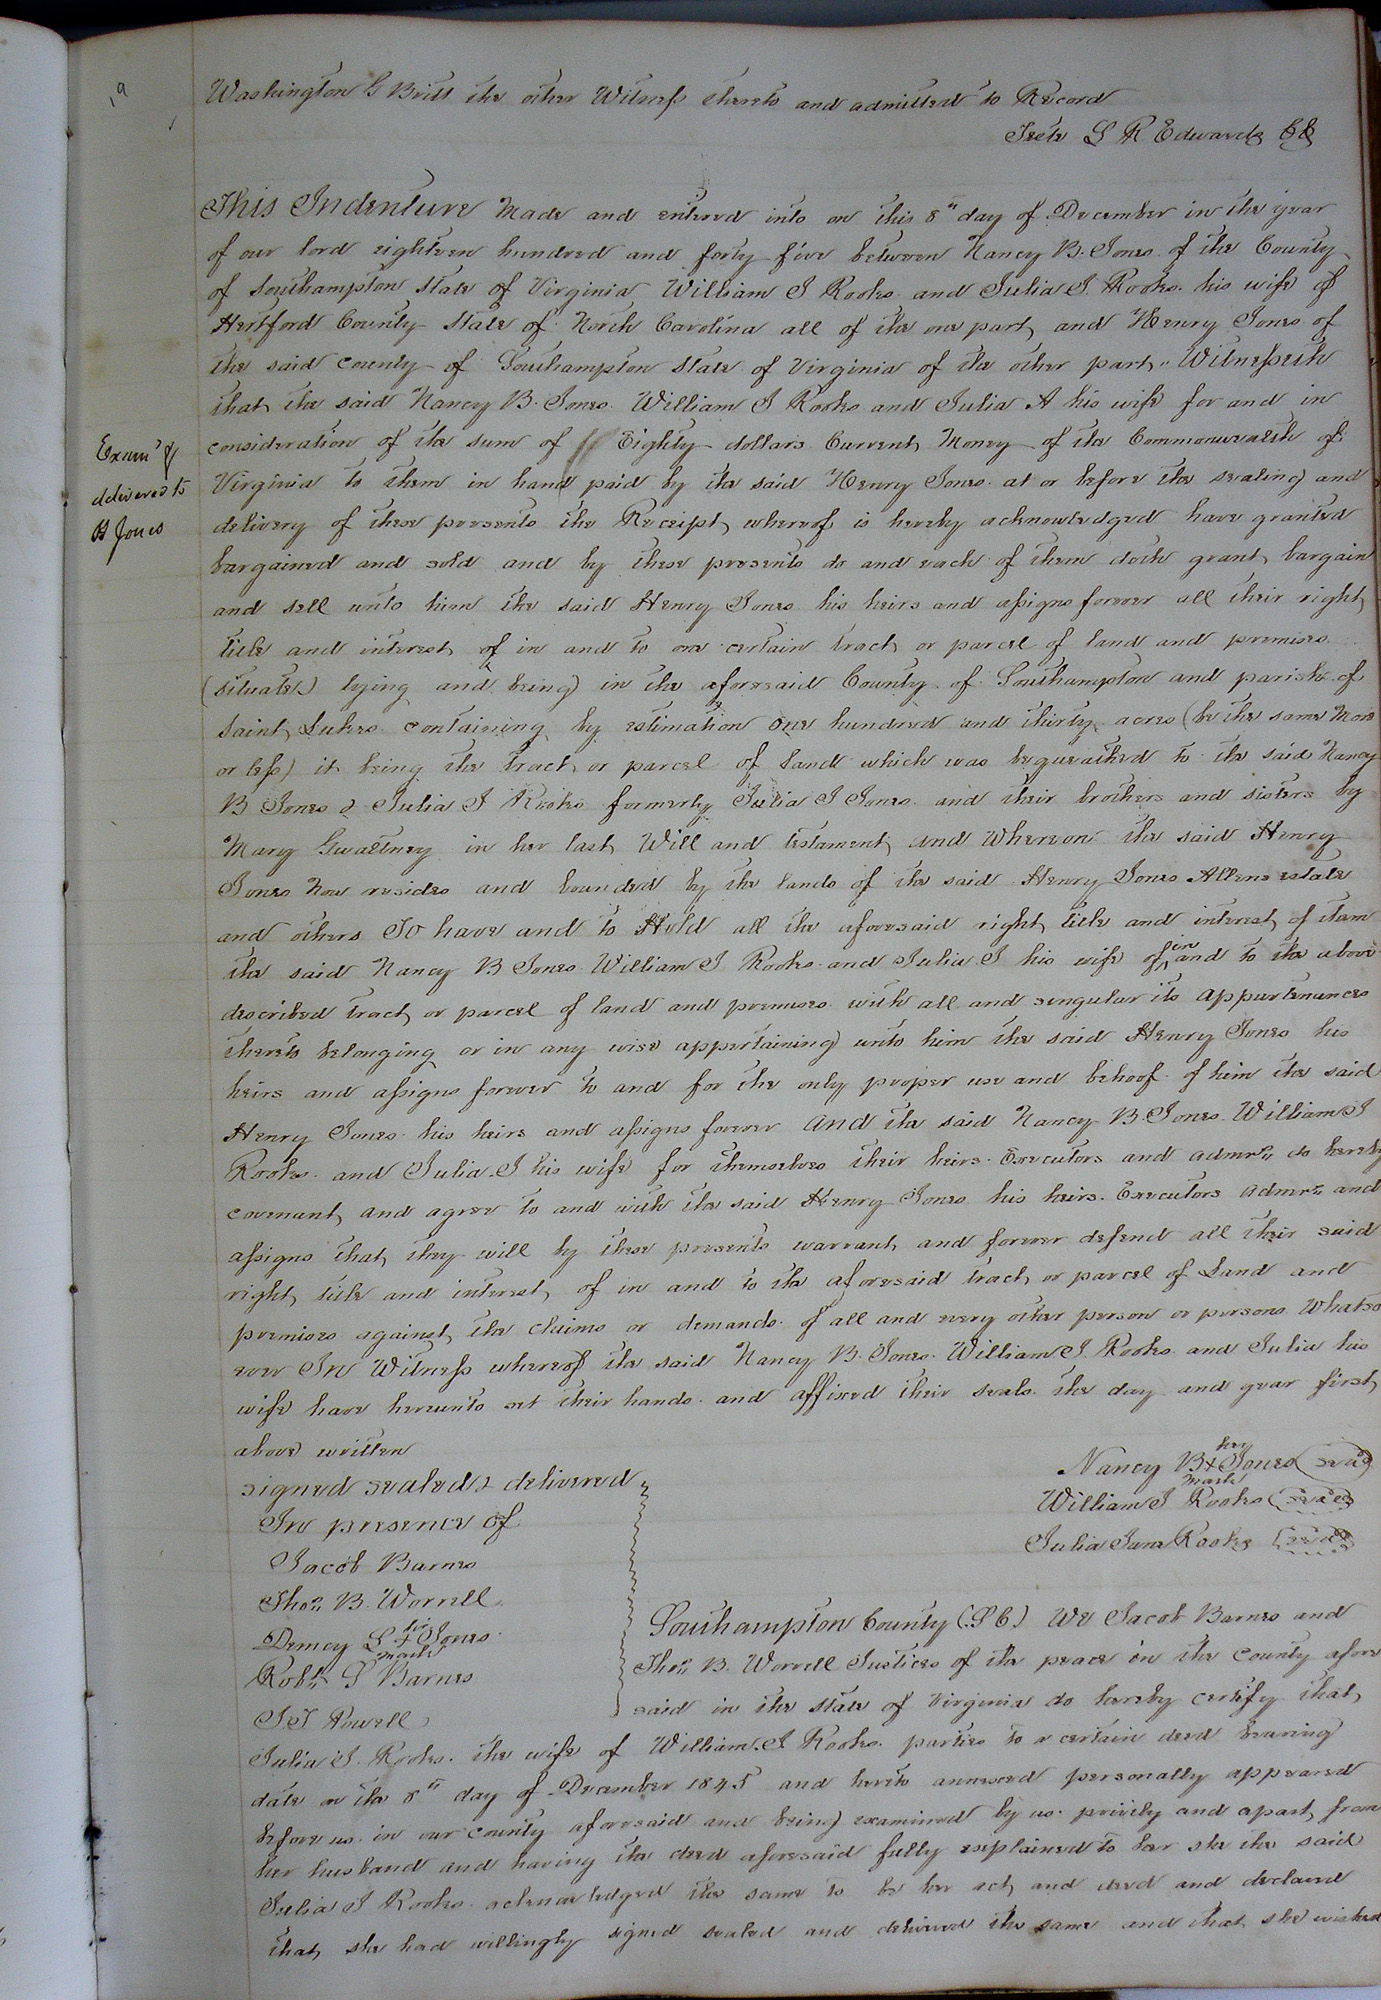 19
Washington G Britt the other Witness thereto and admitted to Record
Teste L R Edwards CC
This Indenture Made and entered into on this 8th day of December in the year
of our lord eighteen hundred and forty five between Nancy B. Jones of the County
of Southampton State of Virginia William J Rooks and Julia J. Rooks his wife of
Hertford County State of North Carolina all of the one part and Henry Jones of
the said County of Southampton State of Virginia of the other part Witnesseth
that the said Nancy B. Jones William J Rooks and Julia A his wife for and in
Exam'd &
delivered to
H Jones
consideration of the sum of Eighty dollars Current Money of the Commonwealth of
Virginia to them in hand paid by the said Henry Jones at or before the sealing and
delivery of these presents the Receipt whereof is hereby acknowledged have granted
bargained and sold and by these presents do and each of them doth grant bargain
and sell unto him the said Henry Jones his heirs and assigns forever all their right
title and interest of in and to one certain tract or parcel of land and premises
(situate lying and being) in the aforesaid County of Southampton and parish of
Saint Lukes containing by estimation one hundred and thirty acres (be the same more
or less) it being the tract or parcel of land which was bequeathed to the said Nancy
B Jones & Julia J Rooks formerly Julia J Jones and their brothers and sisters by
Mary Gwaltney in her last Will and testament and whereon the said Henry
Jones Now resides and bounded by the lands of the said Henry Jones Allens estate
and others To have and to Hold all the aforesaid right title and interest of them
the said Nancy B Jones William J Rooks and Julia J his wife of in and to the above
described tract or parcel of land and premises with all and singular its appurtenances
thereto belonging or in any wise appertaining unto him the said Henry Jones his
heirs and assigns forever to and for the only proper use and behoof of him the said
Henry Jones his heirs and assigns forever And the said Nancy B Jones William J
Rooks and Julia J his wife for themselves their heirs Executors and admrs do hereby
covenant and agree to and with the said Henry Jones his heirs Executors admrs and
assigns that they will by these presents warrant and forever defend all their said
right title and interest of in and to the aforesaid tract or parcel of Land and
premises against the claims or demands of all and every other person or persons whatso
ever In Witness whereof the said Nancy B. Jones William J. Rooks and Julia his
wife have hereunto set their hands and affixed their seals the day and year first
above written
Nancy B her X mark Jones (seal)
William J Rooks (seal)
Julia Jane Rooks (seal)
signed sealed & delivered
In presence of
Jacob Barnes
Thos. B. Worrell
Demcy L his + mark Jones
Robt. S Barnes
J. J Powell
Southampton County (S C) We Jacob Barnes and
Thos. B. Worrell Justices of the peace in the County afore
said in the state of Virginia do hereby certify that
Julia J. Rooks the wife of William J. Rooks parties to a certain deed bearing
date on the 8th day of December 1845 and hereto annexed personally appeared
before us in our county aforesaid and being examined by us privily and apart from
her husband and having the deed aforesaid fully explained to her she the said
Julia J Rooks acknowledged the same to be her act and deed and declared
that she had willingly signed sealed and delivered the same and that she wished